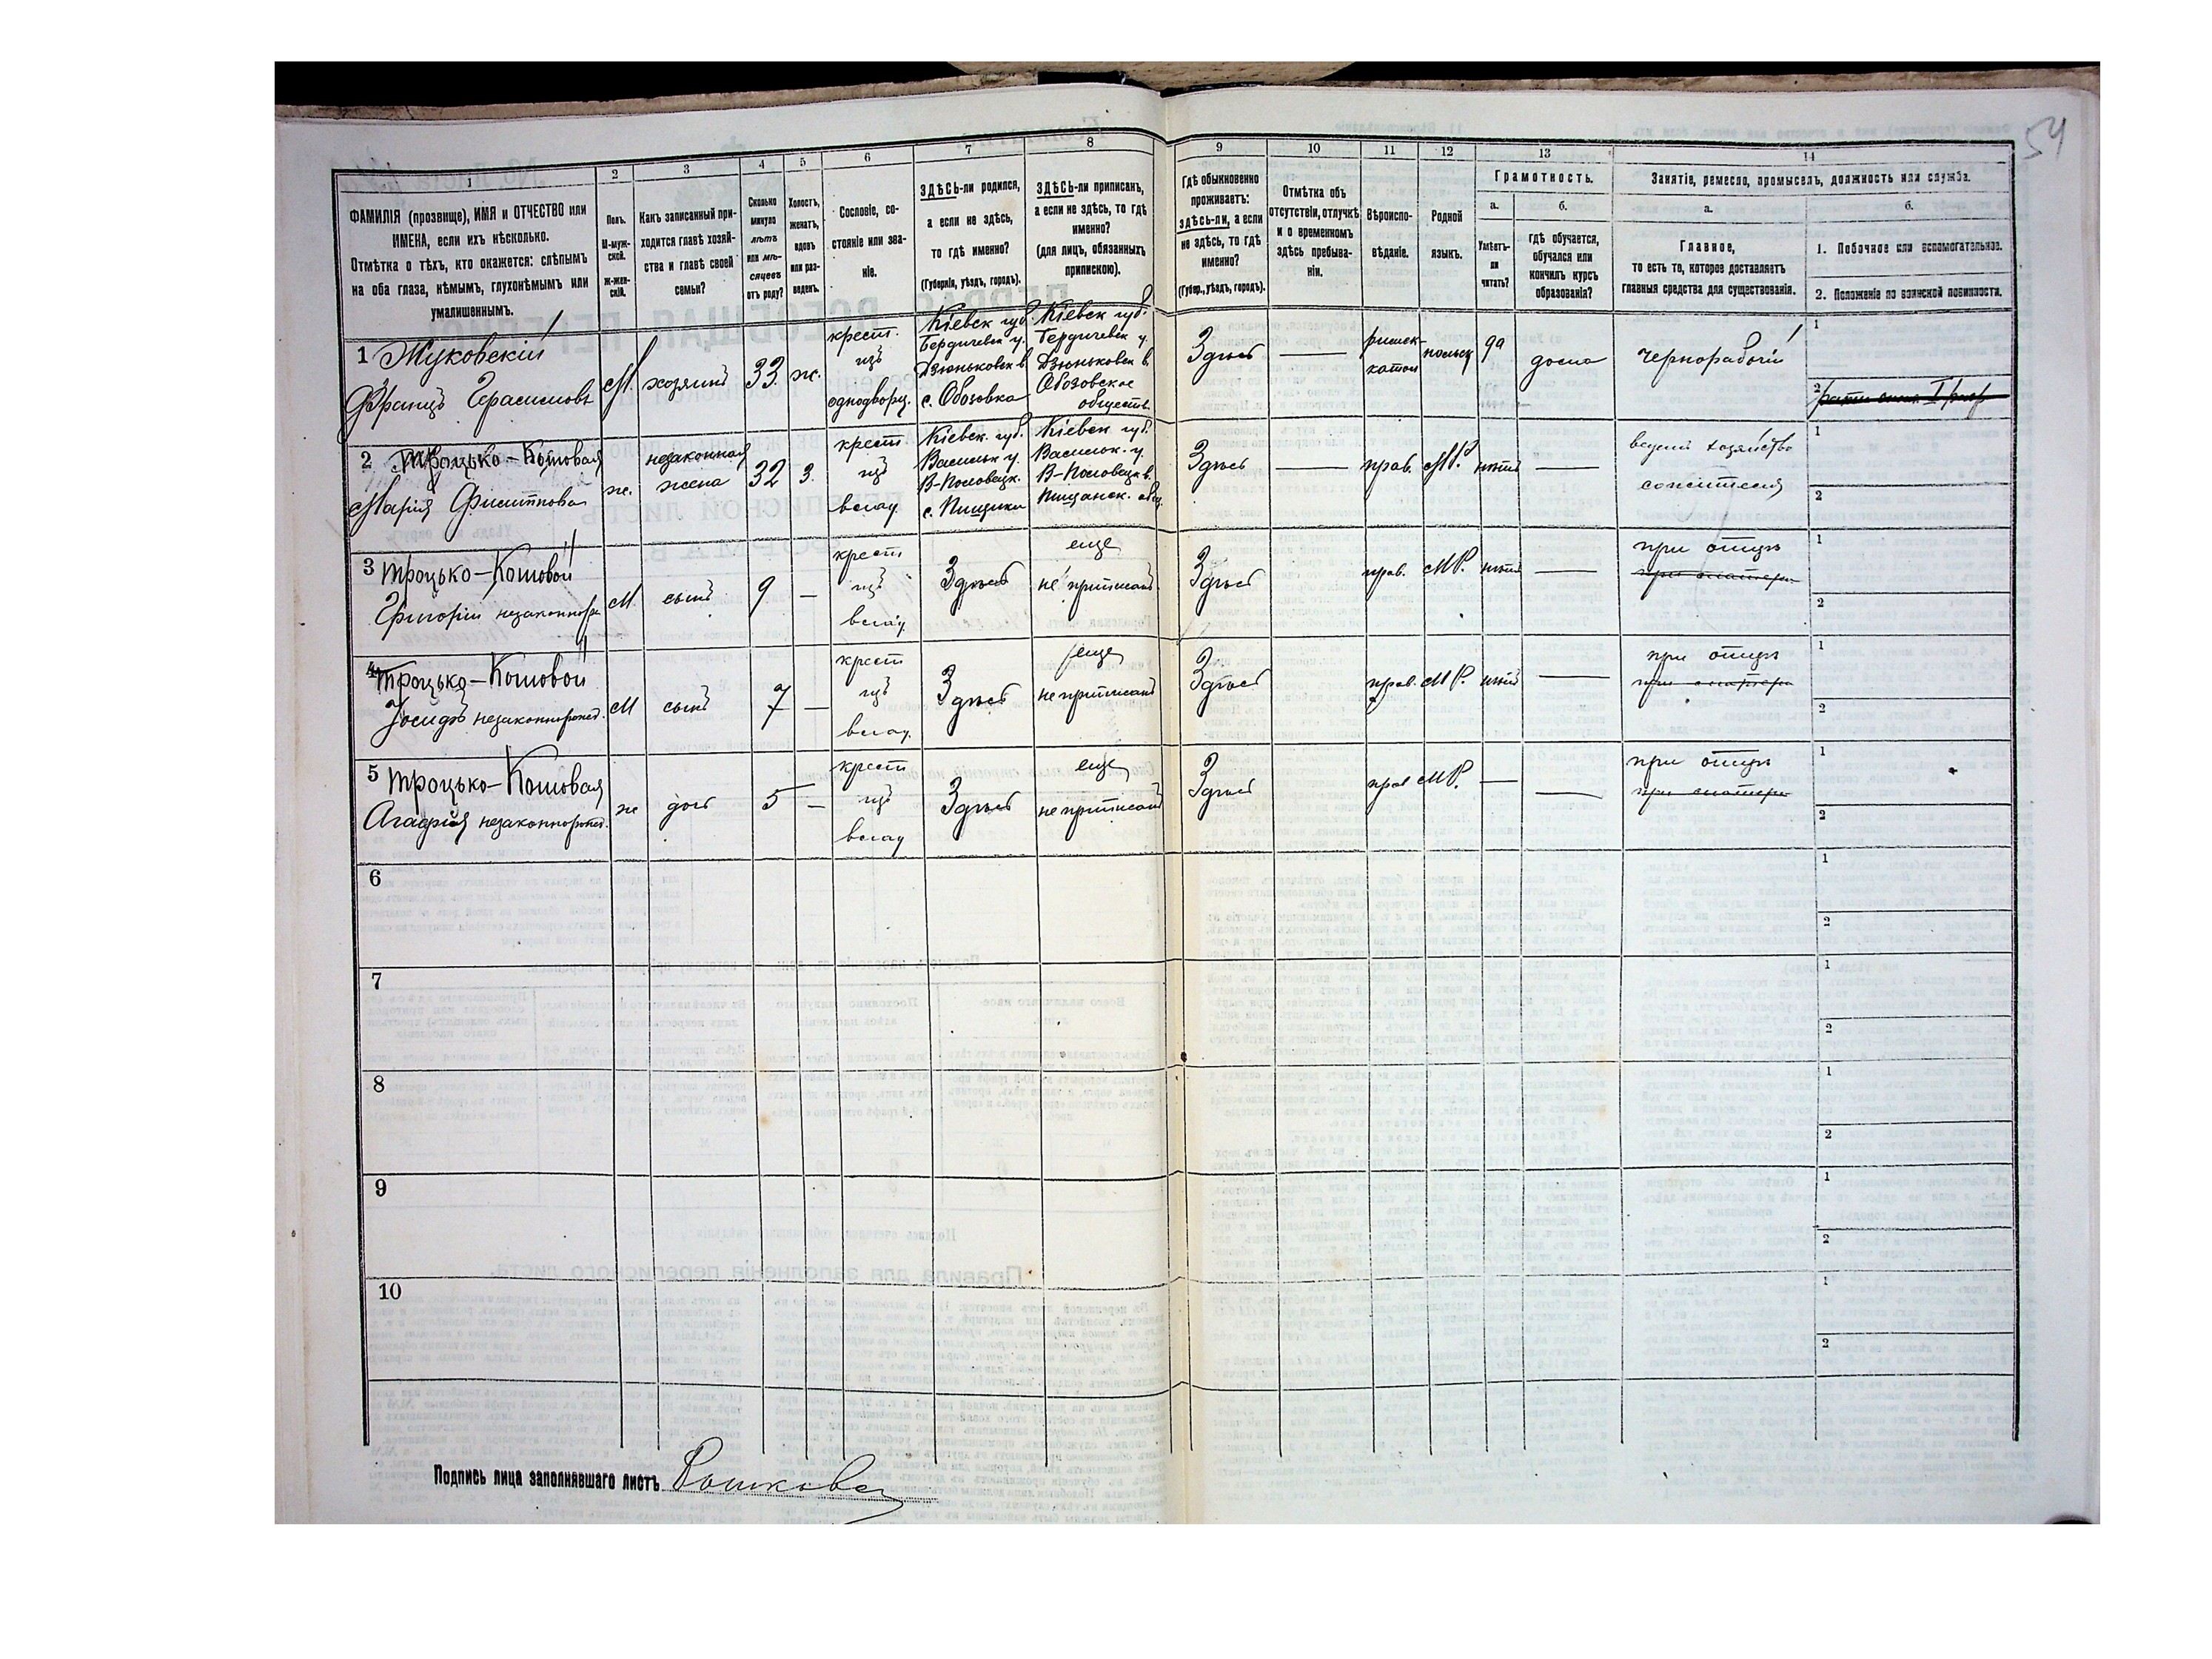 54
1
2
3
4
5
6
7
8
9
10
11
12
13
14
ФАМИЛІЯ (прозвище), ИМЯ и ОТЧЕСТВО или
ИМЕНА, если ихъ нѣсколько.
Отмѣтка о тѣхъ, кто окажется: слѣпымъ
на оба глаза, нѣмымъ, глухонѣмымъ или
умалишеннымъ.
Полъ.
М-муж-
ской.
Ж-жен-
скій.
Какъ записанный при-
ходится главѣ хозяй-
ства и главѣ своей
семьи?
Сколько
минуло
лѣтъ
или мѣ-
сяцевъ
отъ роду?
Холостъ,
женатъ,
вдовъ
или раз-
веденъ.
Сословіе, со-
стояніе или зва-
ніе.
ЗДѢСЬ-ли родился,
а если не здѣсь,
то гдѣ именно?
(Губернія, уѣздъ, городъ).
ЗДѢСЬ-ли приписанъ,
а если не здѣсь, то гдѣ
именно?
(для лицъ, обязанныхъ
припискою).
Гдѣ обыкновенно
проживаетъ:
здѣсь-ли, а если
не здѣсь, то гдѣ
именно?
(Губер., уѣздъ, городъ).
Отмѣтка объ
отсутствіи, отлучкѣ
и о временномъ
здѣсь пребыва-
ніи.
Вѣроиспо-
вѣданіе.
Родной
языкъ.
Грамотность.
а.
б.
Умѣетъ-
ли
читать?
гдѣ обучается,
обучался или
кончилъ курсъ
образованія?
Занятіе, ремесло, промыселъ, должность или служба.
а.
б.
Главное,
то есть то, которое доставляетъ
главныя средства для существованія.
1. Побочное или вспомогательное.
2. Положеніе по воинской повинности.
1 Жуковскій
Францъ Герасимовъ
М. хозяинъ 33. ж.
крест.
изъ
однодворц.
Кіевск губ.
Бердичевск у.
Дзюньковск в.
с. Обозовка
Кіевск губ.
Бердичевск у.
Дзюньковск в.
Обозовское
обществ.
Здѣсь
—
римск-
катол
польск
да
дома
чернорабочій
1
2
2 Троцько-Кошовая
Марія Филиппова
ж.
незаконная
жена
32 з.
крест
изъ
влад.
Кіевск. губ.
Васильк у.
В-Половецк.
с. Пищики
Кіевск губ.
Васильк. у.
В-Половецк в.
Пищанск. общ.
Здѣсь — прав. МР. нѣтъ —
ведетъ хозяйство
сожителя
1
2
3 Троцько-Кошовой
Григорій незаконнор.
М. сынъ 9 —
крест
изъ
влад.
Здѣсь
еще
не приписанъ
Здѣсь прав. МР. нѣтъ —
при отцѣ
при матери
1
2
4 Троцько-Кошовой
Іосифъ незаконнорожд.
М сынъ 7 —
крест
изъ
влад.
Здѣсь
еще
не приписанъ
Здѣсь прав. МР. нѣтъ —
при отцѣ
при матери
1
2
5 Троцько-Кошовая
Агафія незаконнорожд.
ж дочь 5 —
крест
изъ
влад
Здѣсь
еще
не приписанъ
Здѣсь прав МР. — —
при отцѣ
при матери
1
2
6
1
2
7
1
2
8
1
2
9
1
2
10
1
2
Подпись лица заполнявшаго листъ